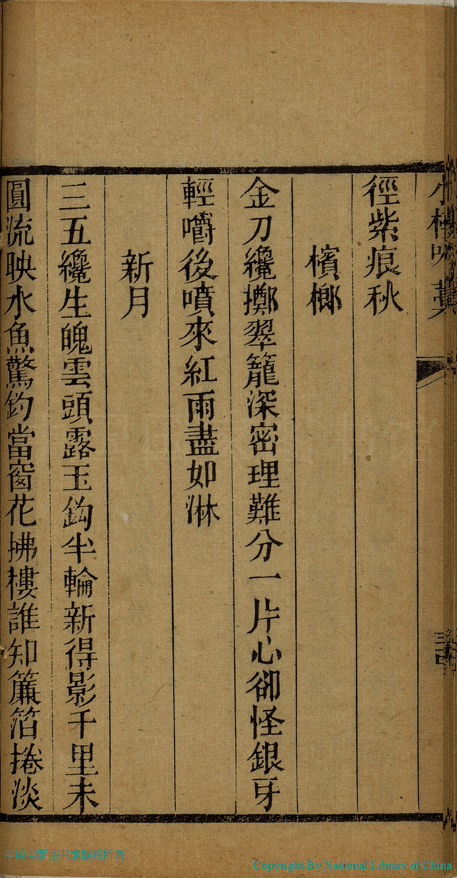 徑紫痕秋
檳榔
金刀纔擲翠籠深密理難分一片心卻怪銀牙
輕嚼後噴來紅雨盡如淋
新月
三五纔生魄雲頭露玉鉤半輪新得影千里未
圓流映水魚驚釣當窗花拂樓誰知簾箔捲淡
Copyright By National Library of China